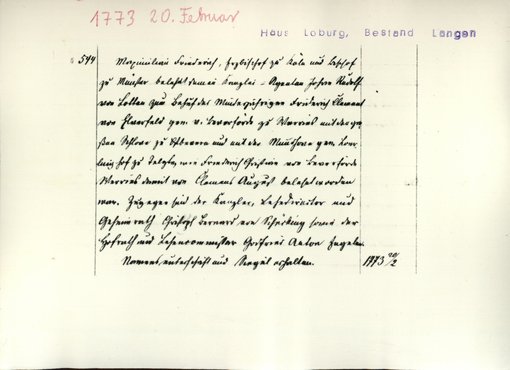 1773 20. Februar
Haus Loburg, Bestand Langen
544 Maximilian Friederich, Erzbischof zu Köln und Bischof
zu Münster belehnt seinen Kanzlei-Agenten Johan Rudolf
von zum Behuf des Minderjährigen Friderich Clement
von Elverfeld gen. v. Beverförde zu Werries mit den
zu Ostbevern und mit der gen.
hof zu Telgte, wie Friederich Christian von Beverförde
Werries damit von Clemens August belehnt worden
war. Zugegen sind der Kanzler, Lehedirector und
Geheimrath Christoph Bernard von Schücking sowie der
Hofrath und Lehencommissar Gotfried Anton
Namens, unterschrift und Siegel erhalten. 1773 20/2